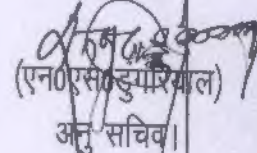 (एन0एस0डुंगरियाल)
अनु सचिव।